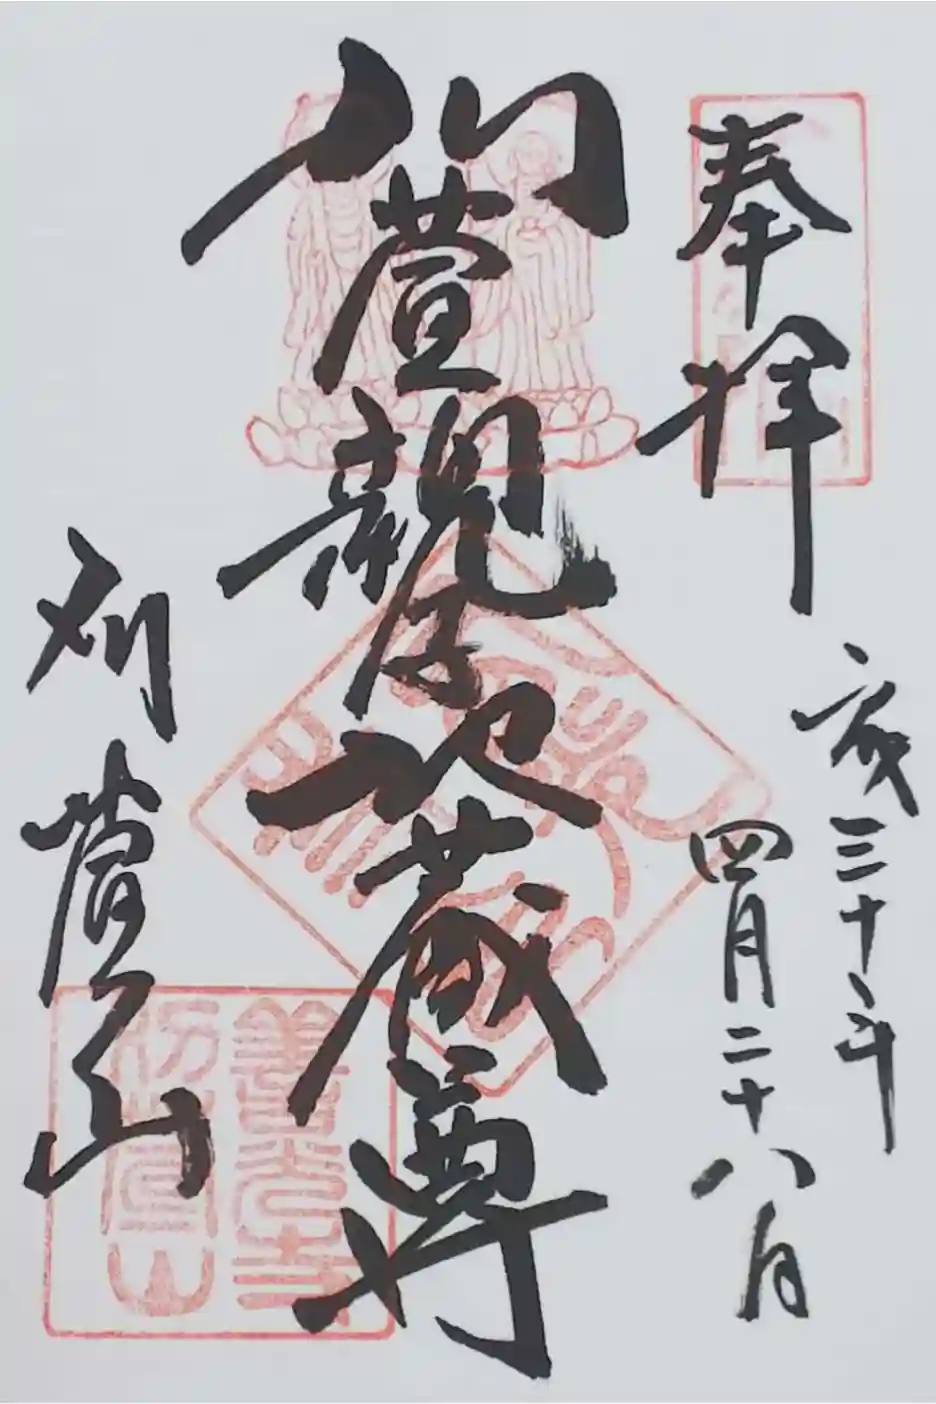 奉拝
平成三十年
四月二十八日
刈萱親子地蔵尊
刈萱山
善光寺
刈萱山